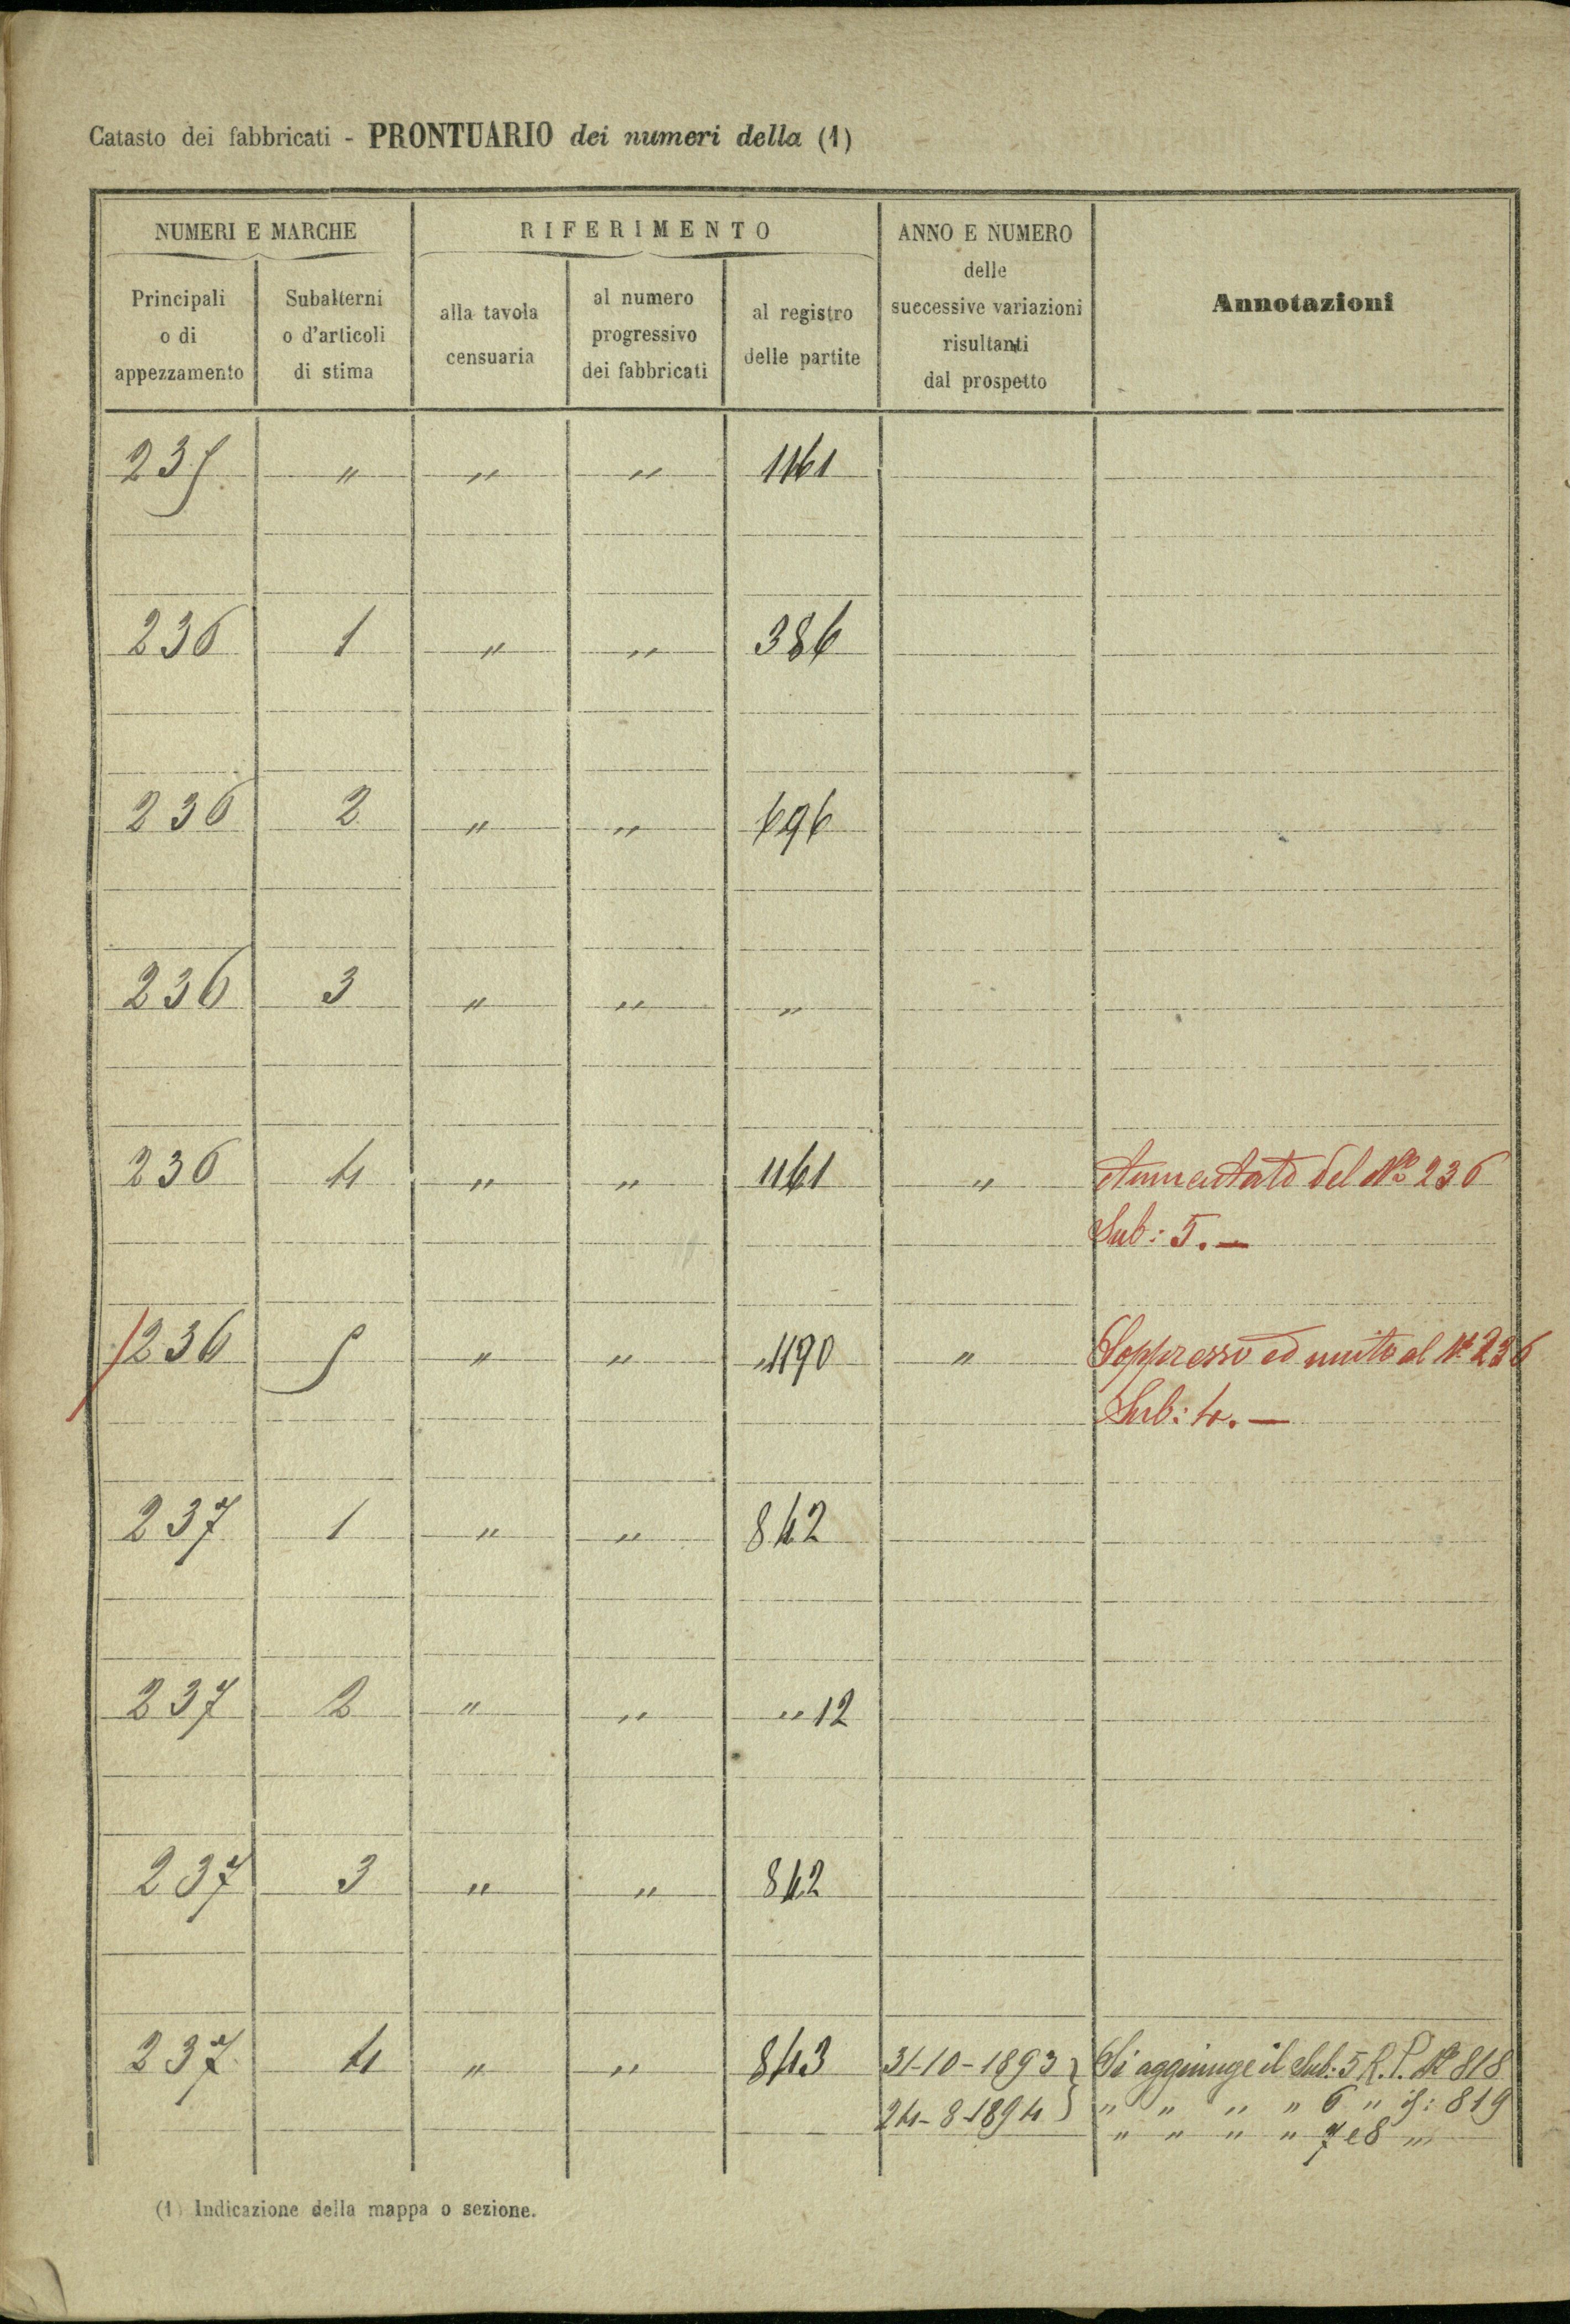 Catasto dei fabbricati - PRONTUARIO dei numeri della (1)
NUMERI E MARCHE
RIFERIMENTO
ANNO E NUMERO
delle
successive variazioni
risultanti
dal prospetto
Annotazioni
Principali
o di
appezzamento
Subalterni
o d'articoli
di stima
alla tavola
censuaria
al numero
progressivo
dei fabbricati
al registro
delle partite
235 " " " 1161
236 1 " " 386
236 2 " " 696
236 3 " " "
236 4 " " 1161 " Aumentato del No 236
Sub: 5. —
236 5 " " 1190 " Soppresso ed unito al No 236
Sub: 4. —
237 1 " " 842
237 2 " " " 12
237 3 " " 842
237 4 " " 843 31-10-1893 } Si aggiunge il Sub: 5 R. P. No 818
24-8-1894 } " " " " 6 " if: 819
" " " " 7 e 8 "
(1) Indicazione della mappa o sezione.